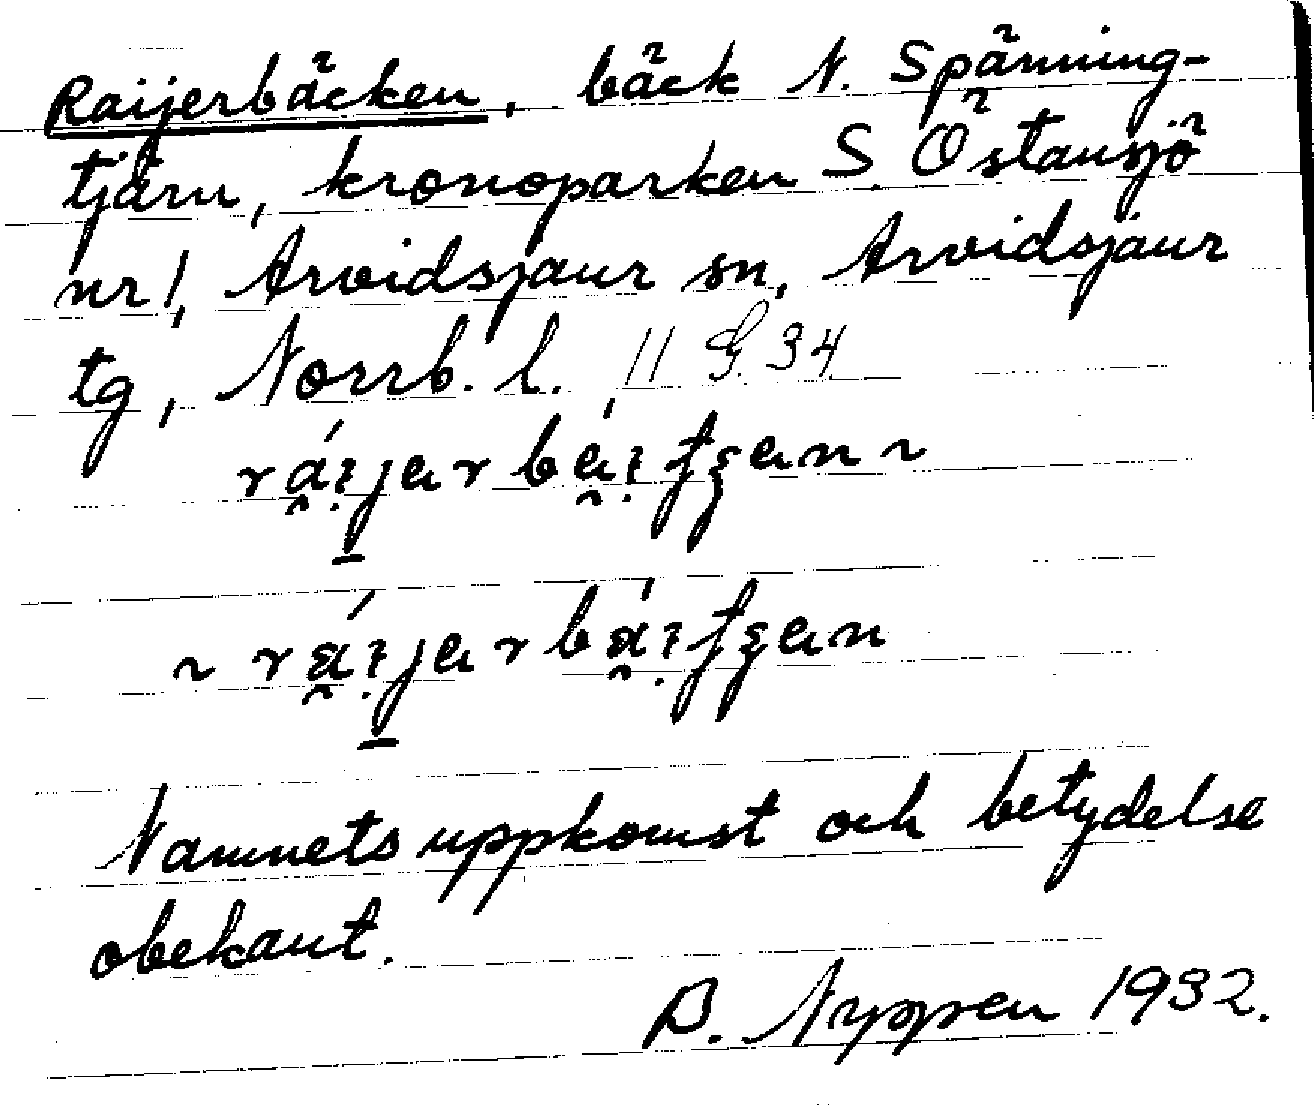 Raijerbäcken, bäck N. Spänning-
tjärn, kronoparken S. Östansjö
nr 1, Arvidsjaur sn, Arvidsjaur
tg, Norrb. l., 11 G. 34
Namnets uppkomst och betydelse
obekant.
B. Nyppen 1932.